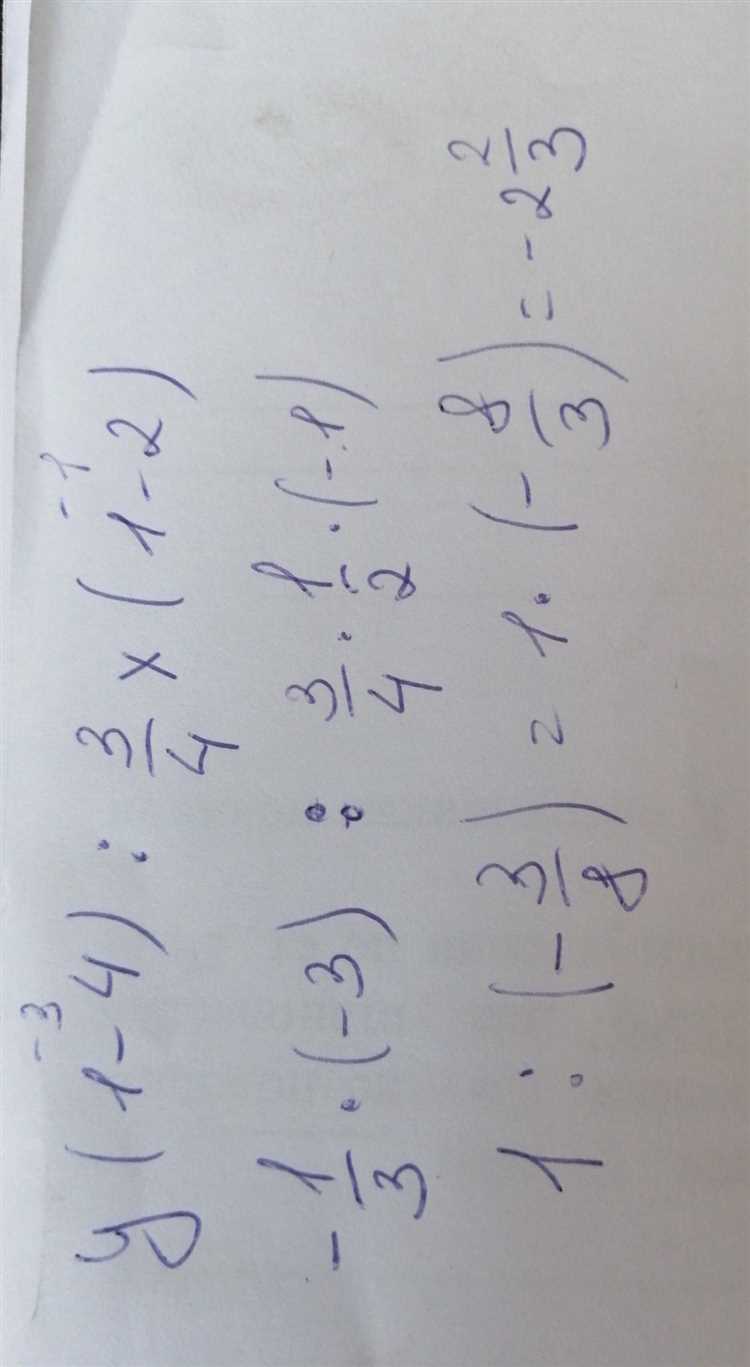 y(1-4) : 3/4 x (1-2)
-3 -1
-1/3 · (-3) : 3/4 · 1/2 · (-1)
1 : (-3/8) = 1 · (-8/3) = -2 2/3